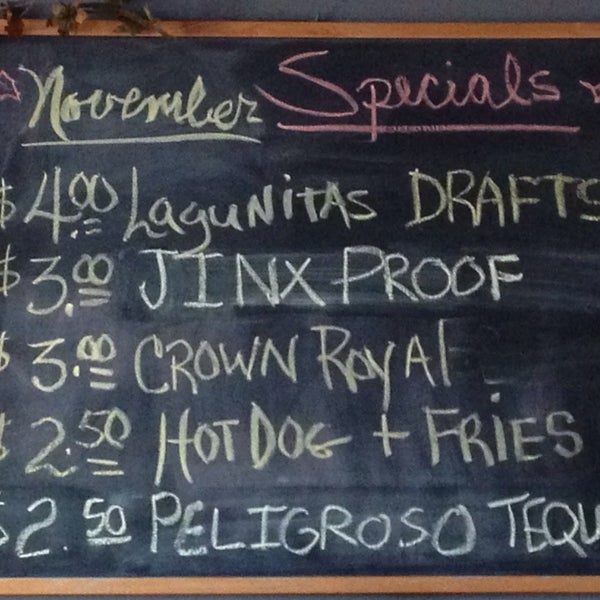 November Specials
$4.00 Lagunitas DRAFTS
$3.00 JINX PROOF
$3.00 CROWN ROYAL
$2.50 HOT DOG + FRIES
$2.50 PELIGROSO TEQU